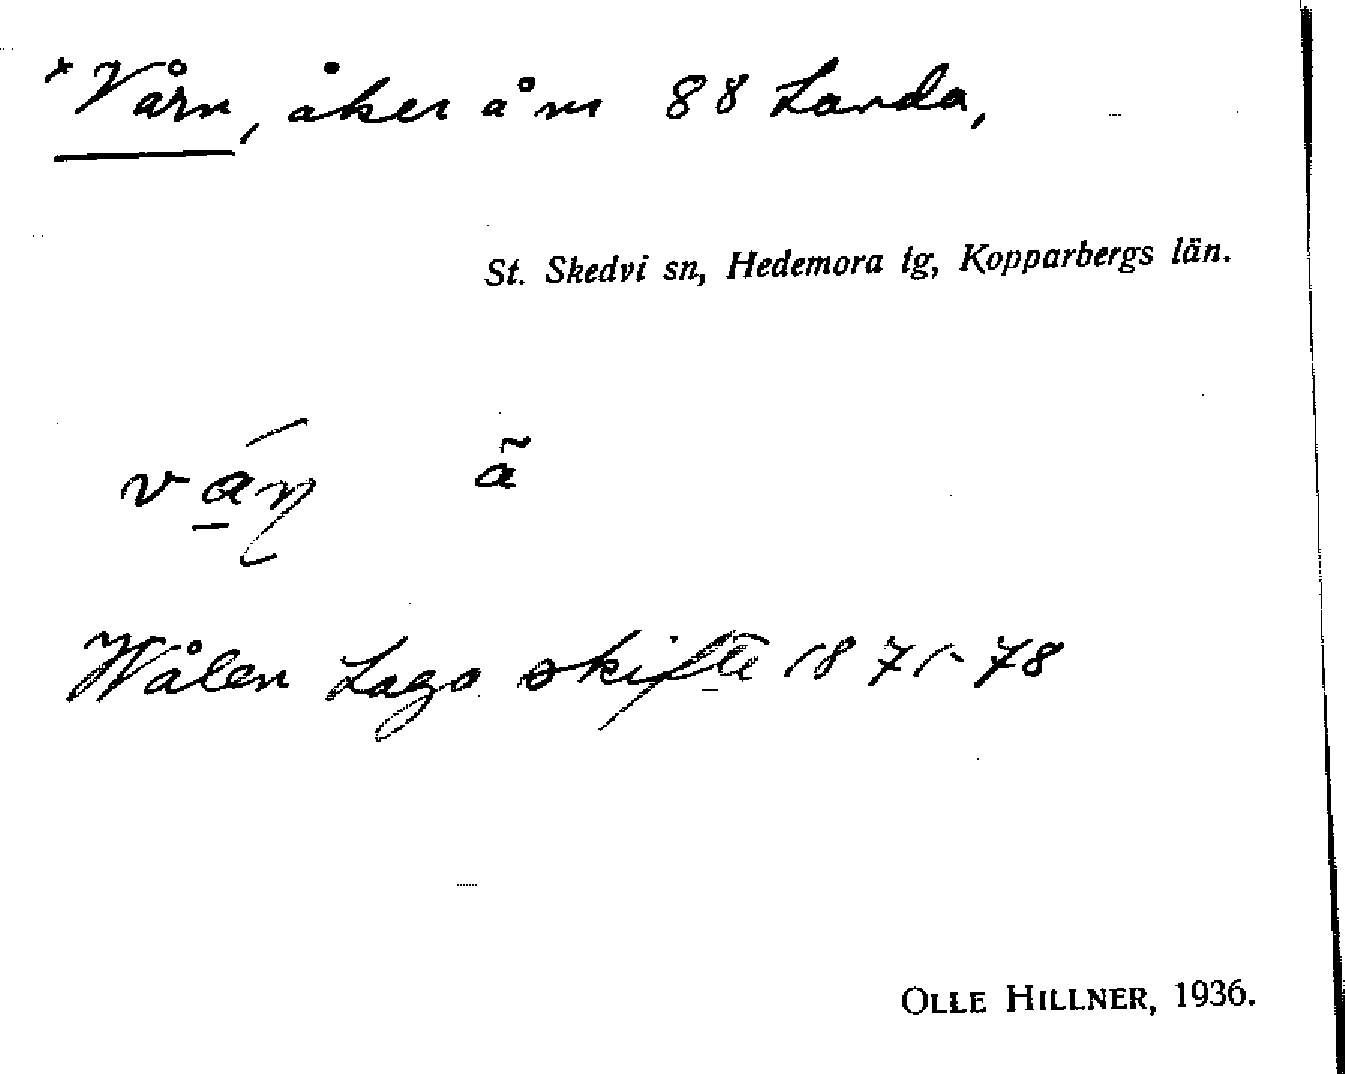 *Vårn, åker åm 88 Landa,
St. Skedvi sn, Hedemora tg, Kopparbergs län.
Wålen Laga skifte 1871-78
OLLE HILLNER, 1936.